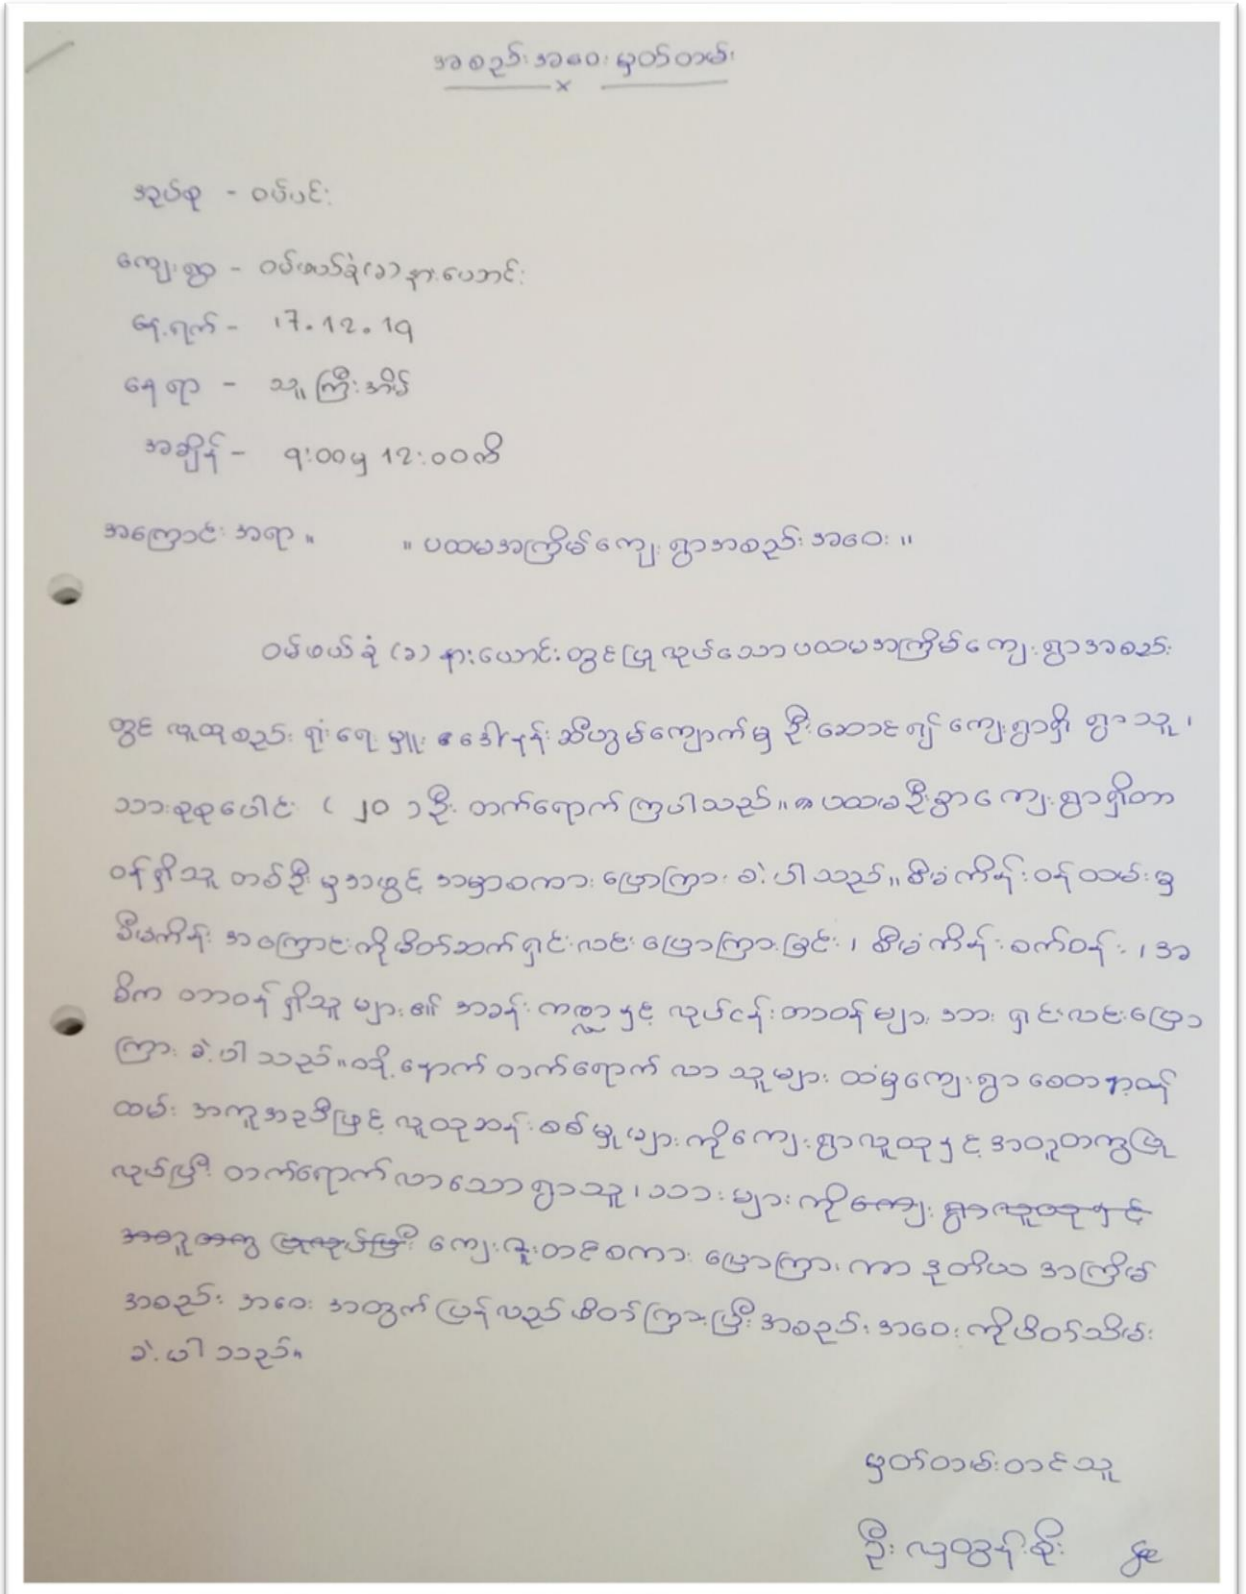 အစည်းအဝေးမှတ်တမ်း
x
အုပ်စု - ဝမ်ပင်း
ကျေးရွာ - ဝမ်ဖယ်ခုံ(ခ)နားယောင်း
နေ့ရက် - 17.12.19
နေရာ - သူကြီးအိမ်
အချိန် - ၅:00မှ 12:00ထိ
အကြောင်းအရာ ။ ။ ပထမအကြိမ်ကျေးရွာအစည်းအဝေး ။
ဝမ်ဖယ်ခုံ(ခ)နားယောင်းတွင်ပြုလုပ်သောပထမအကြိမ်ကျေးရွာအစည်း
တွင် လူထုစည်းရုံးရေးမှူး ဒေါ်နန်းဆီဟွမ်ကျောက်မှ ဦးဆောင်၍ ကျေးရွာရှိ ရွာသူ၊
သားစုစုပေါင်း (၂၀)ဦး တက်ရောက်ကြပါသည်။ ပထမဦးစွာကျေးရွာရှိတာ
ဝန်ရှိသူ တစ်ဦးမှအဖွင့် အမှာစကားပြောကြားခဲ့ပါသည်။စီမံကိန်းဝန်ထမ်းမှ
စီမံကိန်းအကြောင်းကိုမိတ်ဆက်ရှင်းလင်းပြောကြားခြင်း၊ စီမံကိန်းစက်ဝန်း၊အ
ဓိက တာဝန်ရှိသူများ၏ အခန်းကဏ္ဍနှင့် လုပ်ငန်းတာဝန်များအား ရှင်းလင်းပြော
ကြားခဲ့ပါသည်။ထို့နောက် တက်ရောက်လာသူများထံမှကျေးရွာစေတနာ့ဝန်
ထမ်း အကူအညီဖြင့် လူထုဆန်းစစ်မှုများကိုကျေးရွာလူထုနှင့်အတူတကွပြု
လုပ်ပြီး တက်ရောက်လာသောရွာသူ၊သားများကိုကျေးရွာလူထုနှင့်
အတူတကွ ပြုလုပ်ပြီး ကျေးဇူးတင်စကားပြောကြားကာ ဒုတိယအကြိမ်
အစည်းအဝေးအတွက်ပြန်လည်ဖိတ်ကြားပြီးအစည်းအဝေးကိုပိတ်သိမ်း
ခဲ့ပါသည်။
မှတ်တမ်းတင်သူ
ဦးလှထွန်းစိုး